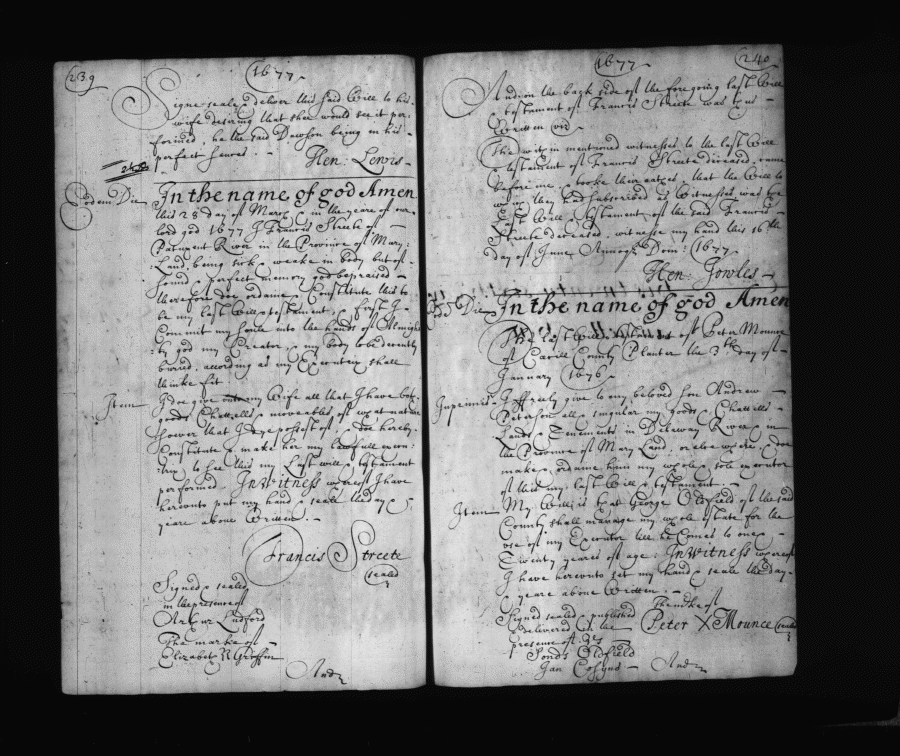 239
1677
Signe seale & deliver this said Will to his
wife desiring that shee would see it per:
formed, he the said Dawson being in his
perfect sences. -
Hen: Lewis
Eodem Die
In the name of god Amen
this 28 day of March in the yeare of our
lord god 1677 I Francis Streete of
Patuxent River in the Province of Mary:
Land, being sick & weake in body but of
sound & perfect memory god be praised
therefore doe ordaine & Constitute this to
be my last Will & testament, first I
Commit my soule into the hands of Almigh
:ty god my Creator, & my body to be decently
buried, according as my Executrix shall
thinke fit
Item
I doe give unto my Wife all that I have both
goods Chattells & moveables of what nature
soever that I am possest of, & doe hereby
Constitute & make her my lawfull execu:
:trix to see this my Last will & testament
performed. In Witness whereof I have
hereunto put my hand & seale the day &
yeare above Written. -
Francis Streete
sealed
Signed & sealed
in the presence of
Arthur Ludford
The marke of
Elizabeth R Griffin
And
1677
240
And on the back side of the foregoing last Will
& testament of Francis Streete was thus
Written viz
The within mentioned witnesses to the last Will
& testament of Francis Streete deceased, came
before me, & tooke their oathes, that the Will to
which they had subscribed as Witnesses was the
Last Will & testament of the said Francis
Streete deceased, witness my hand this 16th
day of June Annoq Dom: 1677
Hen: Jowles
Eod Die
In the name of god Amen
The last Will & testament of Peter Mounce
of Caecill County Planter the 3th day of
January 1676
Inprimis
I freely give to my beloved son Andrew
Peterson all & singular my goods Chattells
Lands Tenements in Delaway River & in
the Province of Mary Land, or else where, & doe
make & ordaine him my whole & sole executor
of this my last Will & testament. -
Item
My Will is that George Oldfield of the said
County shall manage my whole estate for the
use of my Executor till he Comes to one
& Twenty yeares of age: In Witness whereof
I have hereunto set my hand & seale the day
& yeare above Written -
Signed sealed & published
delivered in the
presence of us
The mke of
Peter X Mounce
sealed
Oldfield
Jan
And